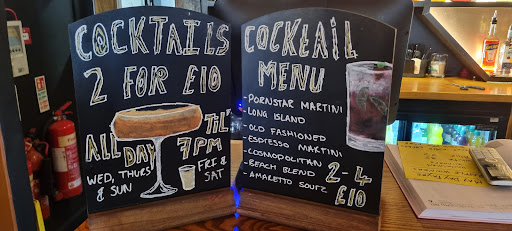 COCKTAILS
2 FOR £10
ALL DAY
WED, THURS
& SUN
TIL'
7PM
FRI &
SAT
COCKTAIL
MENU
- PORNSTAR MARTINI
- LONG ISLAND
- OLD FASHIONED
- ESPRESSO MARTINI
- COSMOPOLITAN
- BEACH BLEND
- AMARETTO SOURZ
2-4
£10